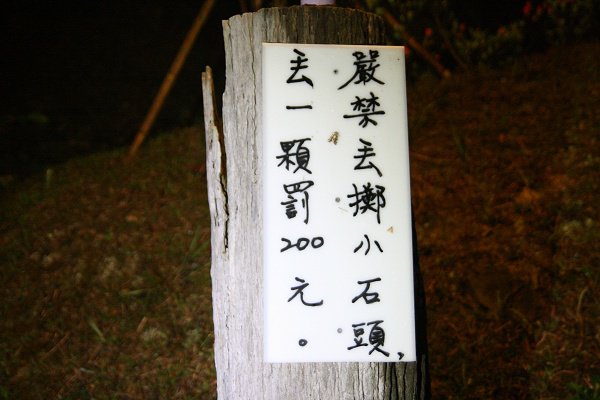 嚴禁丟擲小石頭,
丟一顆罰200元。